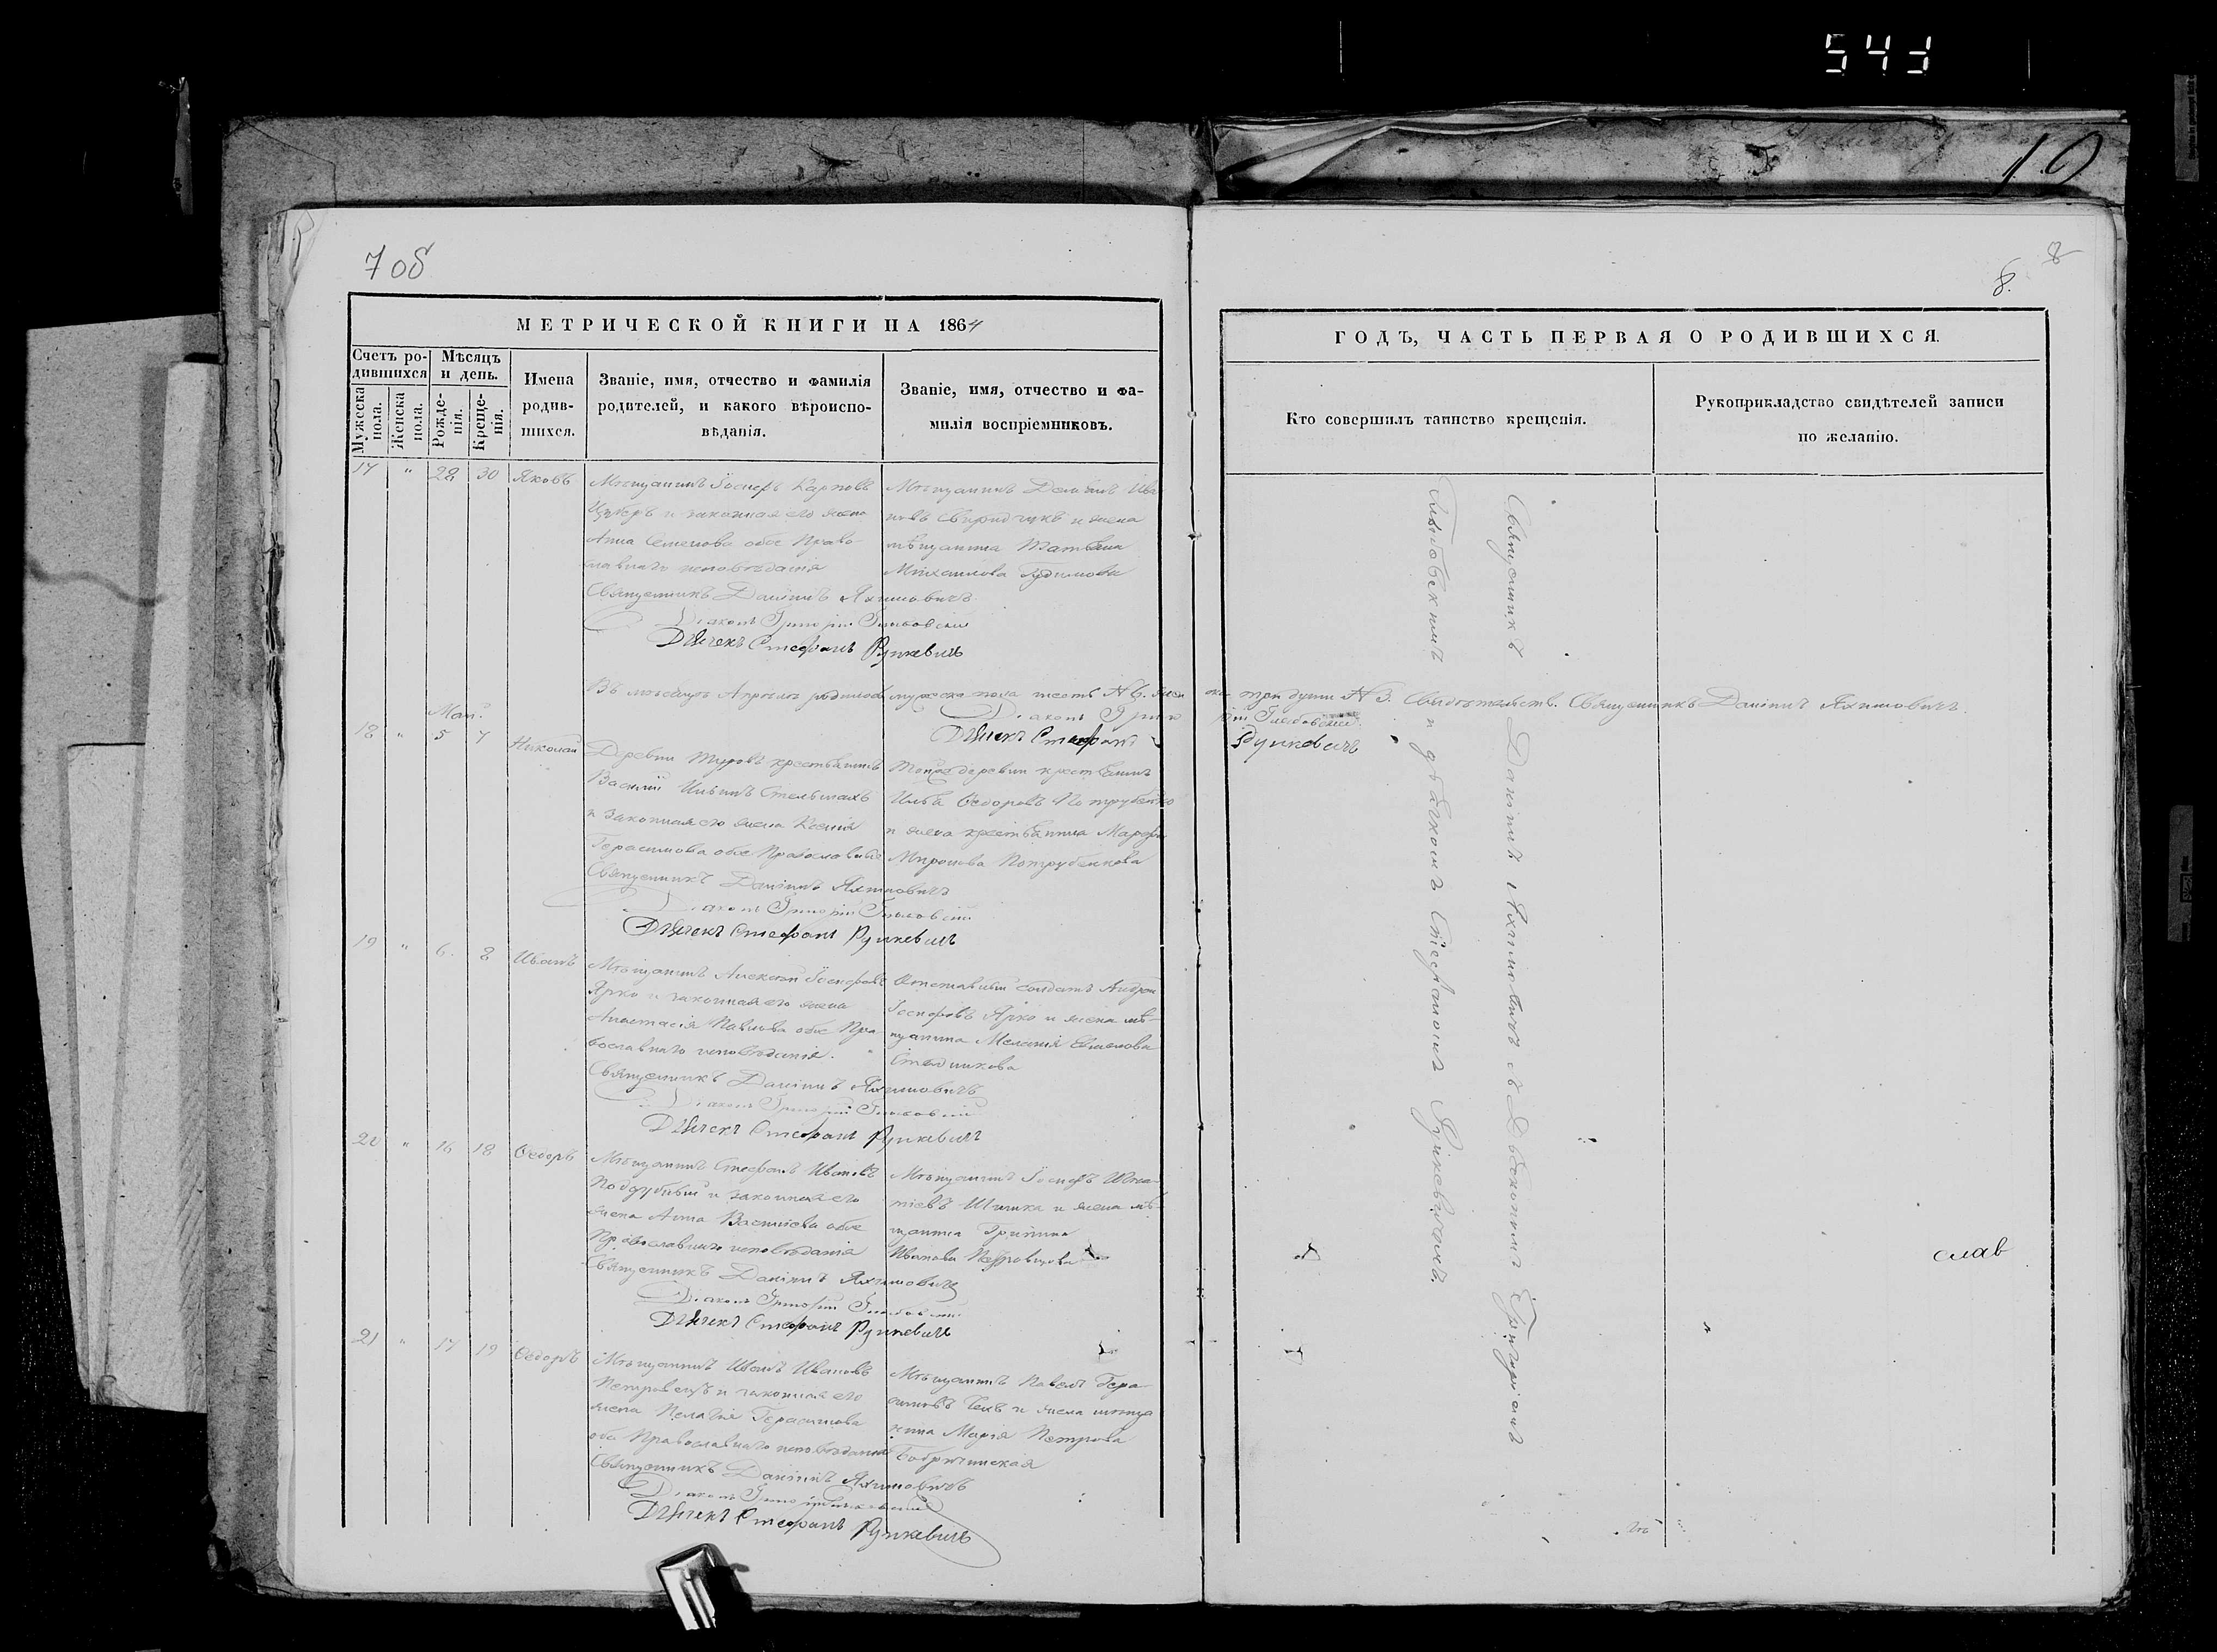 543
10
7 об
8
8.
МЕТРИЧЕСКОЙ КНИГИ НА 1864
Счетъ ро-
дившихся
Мѣсяцъ
и день.
Мужеска
пола.
Женска
пола.
Рожде-
нія.
Креще-
нія.
Имена
родив-
шихся.
Званіе, имя, отчество и фамилія
родителей, и какого вѣроиспо-
вѣданія.
Званіе, имя, отчество и фа-
милія воспріемниковъ.
ГОДЪ, ЧАСТЬ ПЕРВАЯ О РОДИВШИХСЯ.
Кто совершилъ таинство крещенія.
Рукоприкладство свидѣтелей записи
по желанію.
17 " 28 30 Яковъ
Мѣщанинъ Іосифъ Карповъ
и законная его жена
Анна Семенова обое Право-
славнаго исповѣданія
Мѣщанинъ Даніилъ Ива
новъ Свиридчукъ и жена
мѣщанина Татьяна
Михаилова
Священникъ Даніилъ Яхимовичъ
Діаконъ Григорій
Дьячекъ Стефанъ Рункевичъ
Въ мѣсяцѣ Апрѣлѣ родилось мужеска пола шесть № 6. жен
ска три души № 3. Свидѣтельств. Священникъ Даніилъ Яхимовичъ
Діаконъ Григо
рій
Дьячекъ Стефанъ
Рункевичъ
Май.
18 " 5 7 Николай
Деревни Туровъ крестьянинъ
Василій Ильинъ Стельмахъ
и законная его жена Ксенія
Герасимова обое Православные
Тойже деревни крестьянинъ
Илья Ѳедоровъ Потрубейко
и жена крестьянина Марфа
Миронова Потрубейкова
Священникъ Даніилъ Яхимовичъ
Діаконъ Григорій
Дьячекъ Стефанъ Рункевичъ
19 " 6. 8 Иванъ
Мѣщанинъ Алексѣй Іосифовъ
Ярко и законная его жена
Анастасія Павлова обое Пра
вославнаго исповѣданія.
Отставный солдатъ Андрей
Іосифовъ Ярко и жена мѣ-
щанина Меланія
Священникъ Даніилъ Яхимовичъ
Діаконъ Григорій
Дьячекъ Стефанъ Рункевичъ
20 " 16 18 Ѳедоръ
Мѣщанинъ Стефанъ Ивановъ
Поддубный и законная его
жена Анна Василіева обое
Православнаго исповѣданія
Мѣщанинъ Іосифъ Игна-
тіевъ Шишка и жена мѣ-
щанина
Иванова Петровцова
Священникъ Даніилъ Яхимовичъ
Діаконъ Григорій
Дьячекъ Стефанъ Рункевичъ
21 " 17 19 Ѳедоръ
Мѣщанинъ Иванъ Ивановъ
Петровецъ и законная его
жена Пелагія Герасимова
обое Православнаго исповѣданія
Мѣщанинъ Павелъ Гера-
симовъ и жена мѣща
нина Марія Петрова
Священникъ Даніилъ Яхимовичъ
Діаконъ Григорій
Дьячекъ Стефанъ Рункевичъ
Священникъ Даніилъ Яхимовичъ съ Діакономъ Григоріемъ
и дьячкомъ Стефаномъ Рункевичемъ.
слав